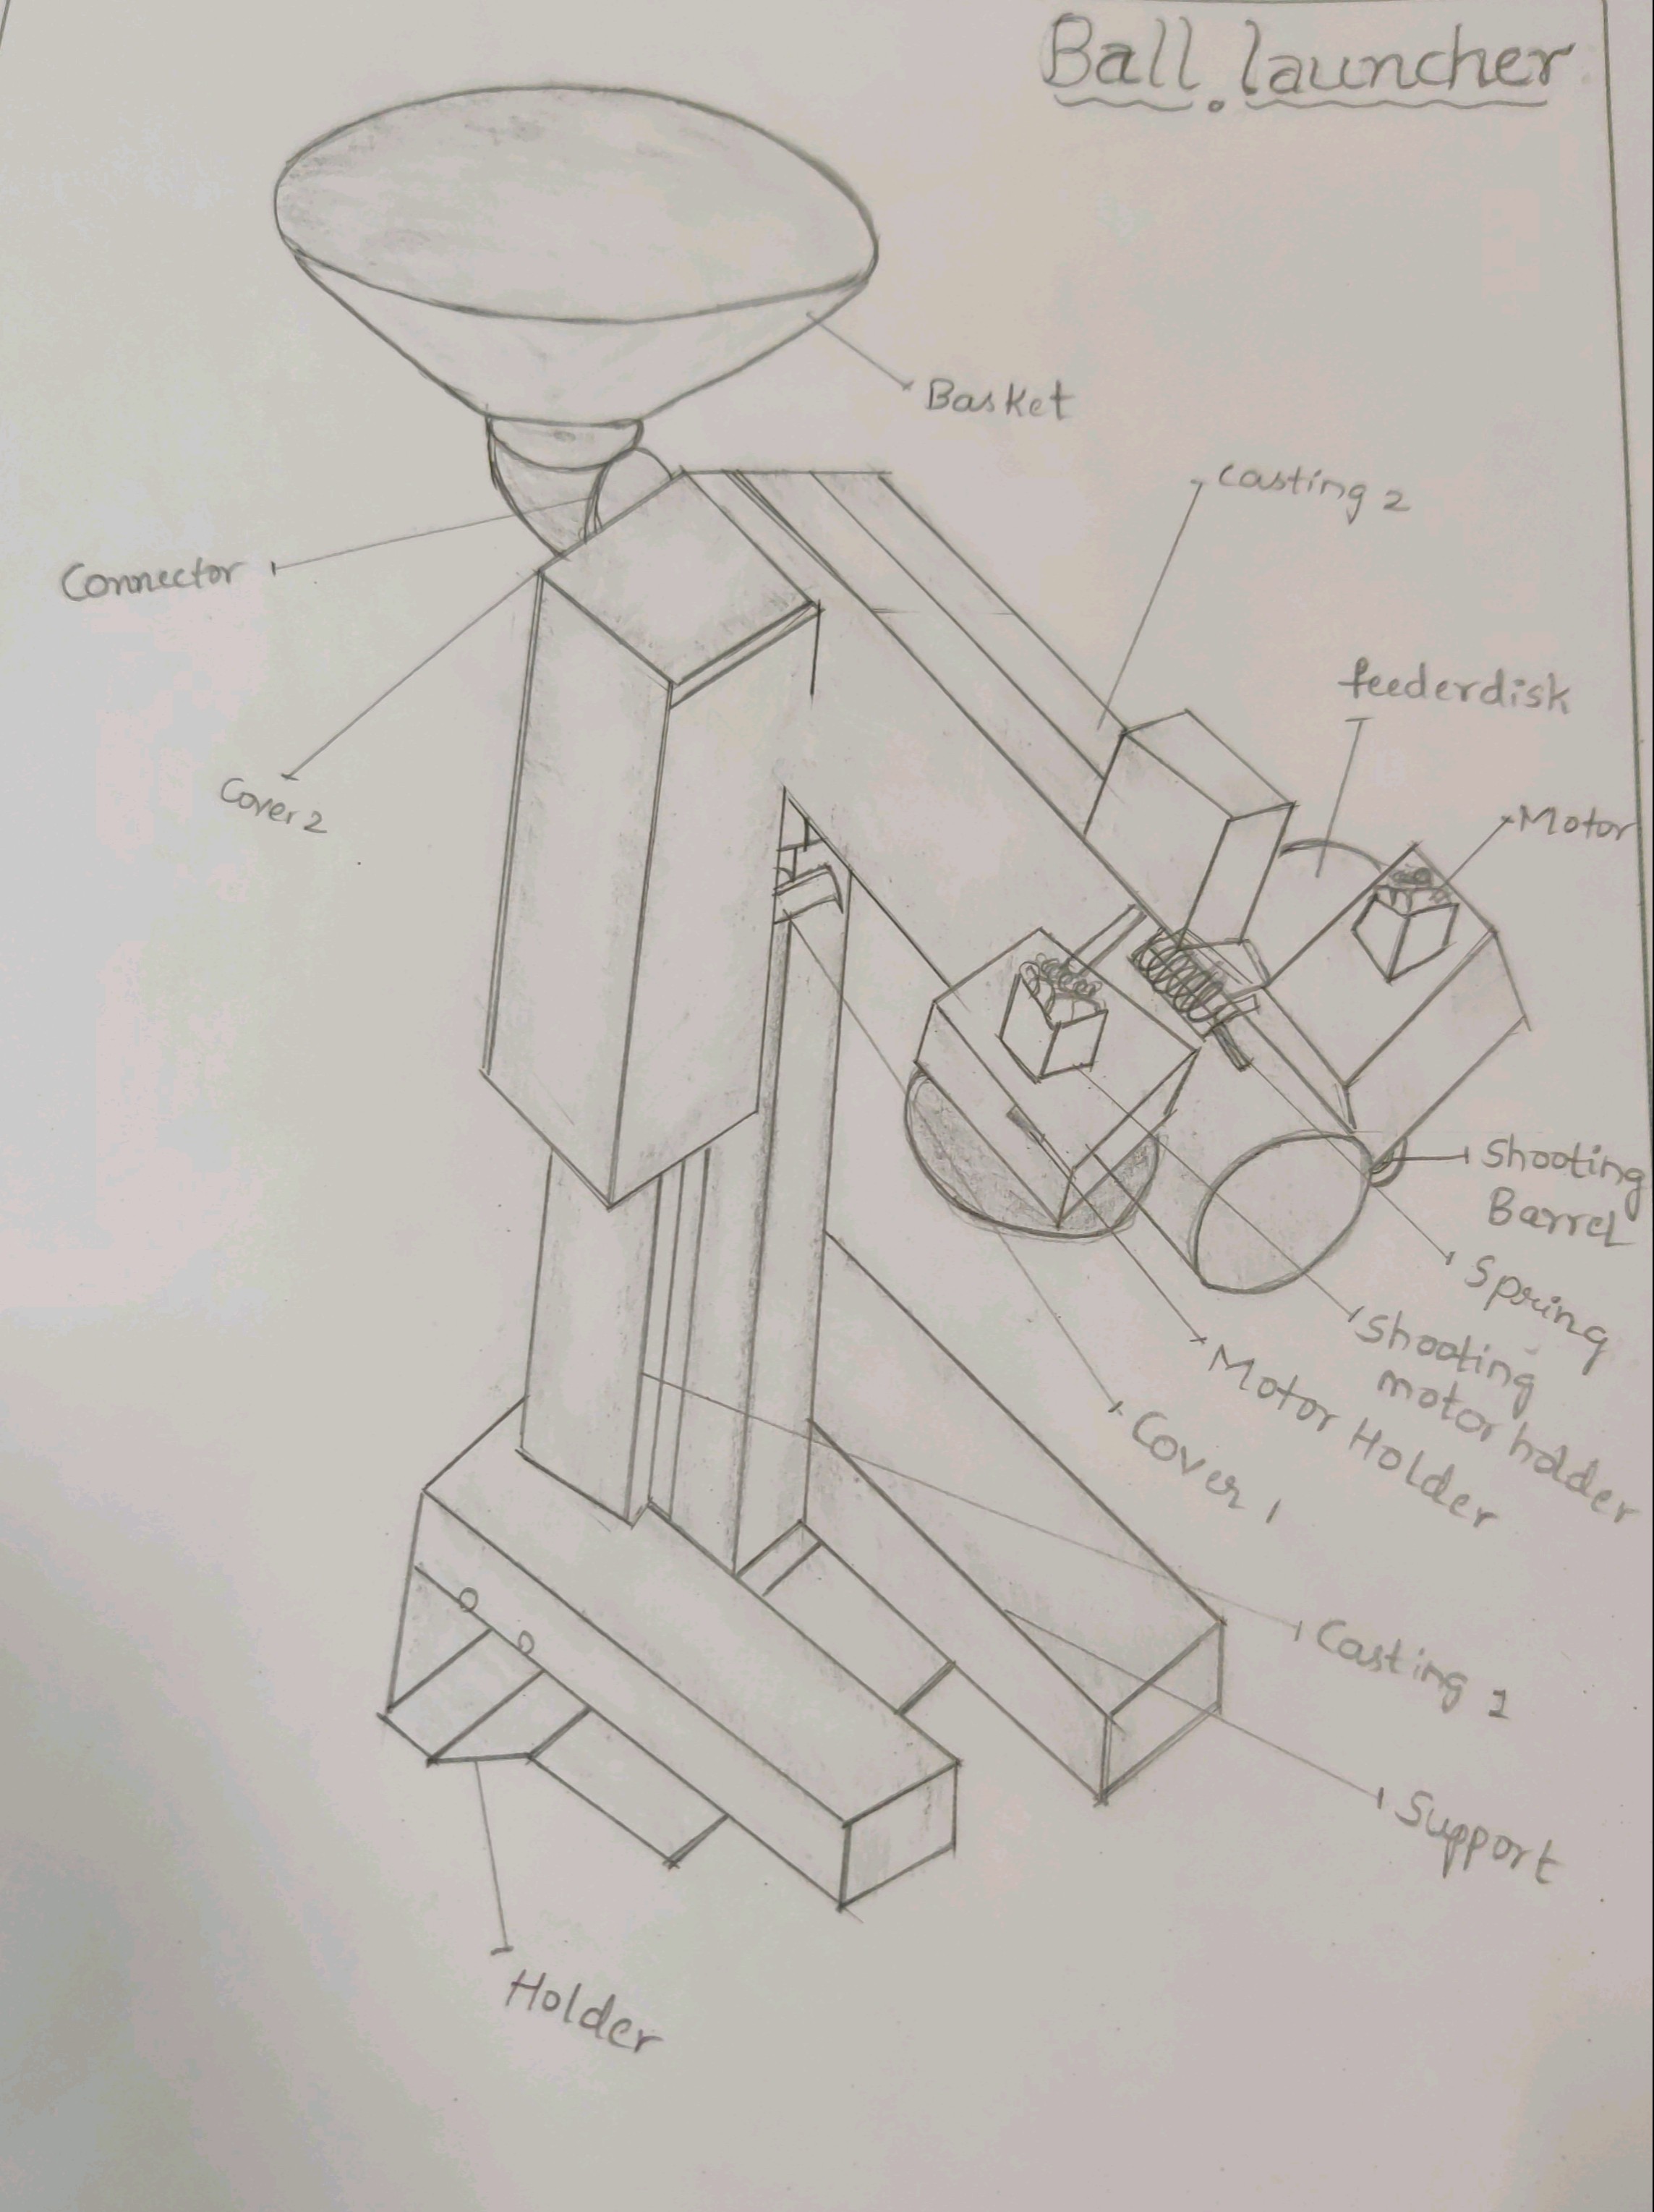 Ball launcher
Basket
Casting 2
Connector
feederdisk
Cover 2
Motor
Shooting
Barrel
Spring
Shooting
motor holder
Motor Holder
Cover 1
Casting 1
Support
Holder